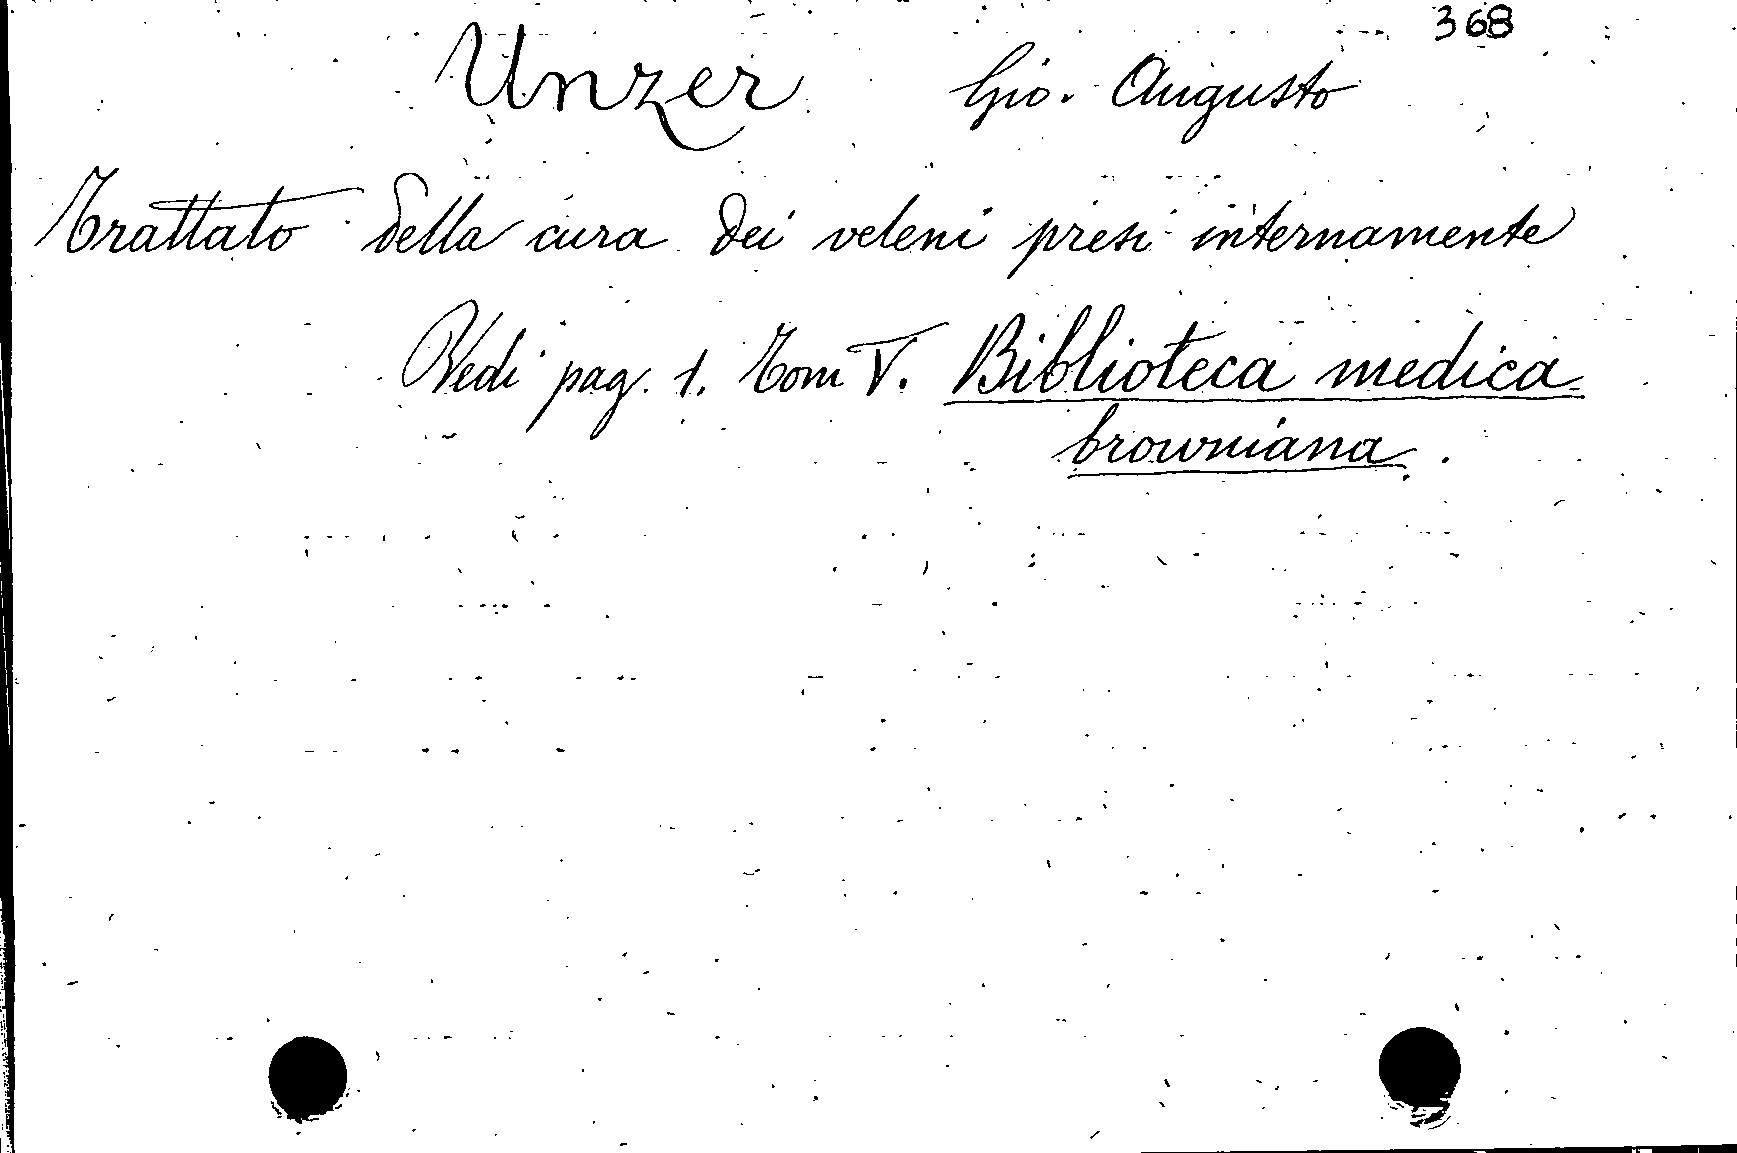 368
Unzer Gio. Augusto
Trattato della cura dei veleni presi internamente
Vedi pag. 1. Tom V. Biblioteca medica
browniana.